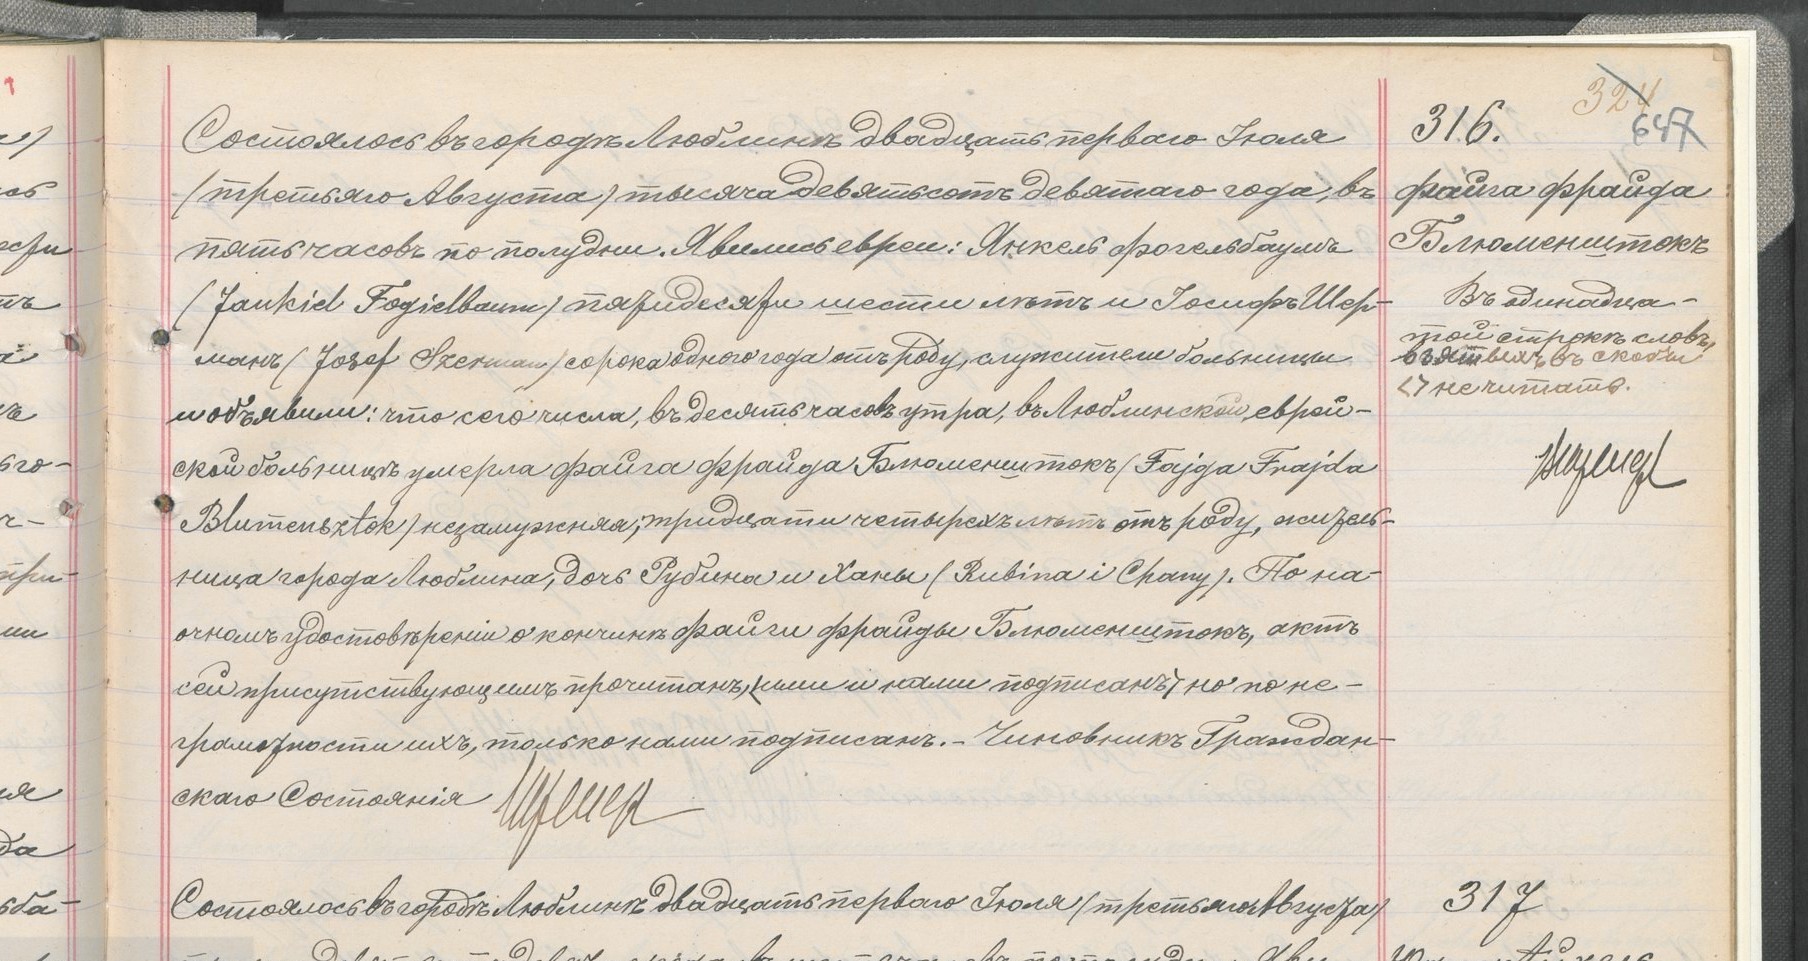 Состоялось въ городѣ Люблинѣ двадцать перваго Іюля
(третьяго Августа) тысяча девятьсотъ девятаго года, въ
пять часовъ по полудни. Явились евреи: Янкель Фогельбаумъ
(Jankiel Fogielbaum) пятидесяти шести лѣтъ и Іосифъ Шер-
манъ (Josef Szerman) сорока одного года отъ роду, служители больницы
и объявили: что сего числа, въ десять часовъ утра, въ Люблинской еврей-
ской больницѣ умерла Файга Фрайда Блюменштокъ (Fajga Frajda
Blumensztok) незамужняя, тридцати четырехъ лѣтъ отъ роду, житель-
ница города Люблина, дочь Рубина и Ханы (Rubina i Chany). По на-
очномъ удостовѣреніи о кончинѣ Файги Фрайды Блюменштокъ, актъ
сей присутствующимъ прочитанъ, <ими и нами подписанъ> но по не-
грамотности ихъ, только нами подписанъ. - Чиновникъ Граждан-
скаго Состоянія
324
647
316.
Файга Фрайда
Блюменштокъ
Въ одинадца-
той строкѣ словъ,
взятыхъ въ скобки
<> не читать.
Состоялось въ городѣ Люблинѣ двадцать перваго Іюля (третьяго Августа)
317